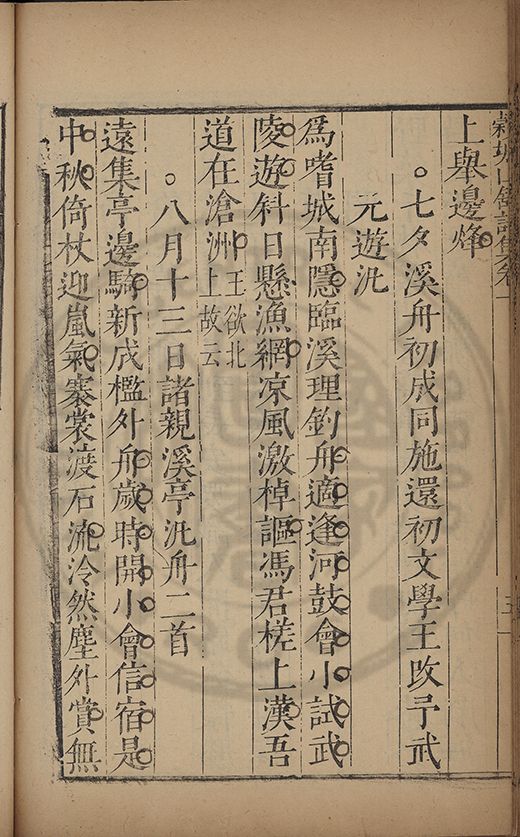 上舉邊烽
。七夕溪舟初成同施還初文學王攺予武
元遊汎
爲嗜城南隱臨溪理釣舟適逢河鼓會小試武
陵遊斜日懸漁網凉風激棹謳馮君槎上漢吾
道在滄洲王欲北上故云
。八月十三日諸親溪亭汎舟二首
遠集亭邊騎新成檻外舟歲時開小會信宿是
中秋倚杖迎嵐氣褰裳渡石流泠然塵外賞無